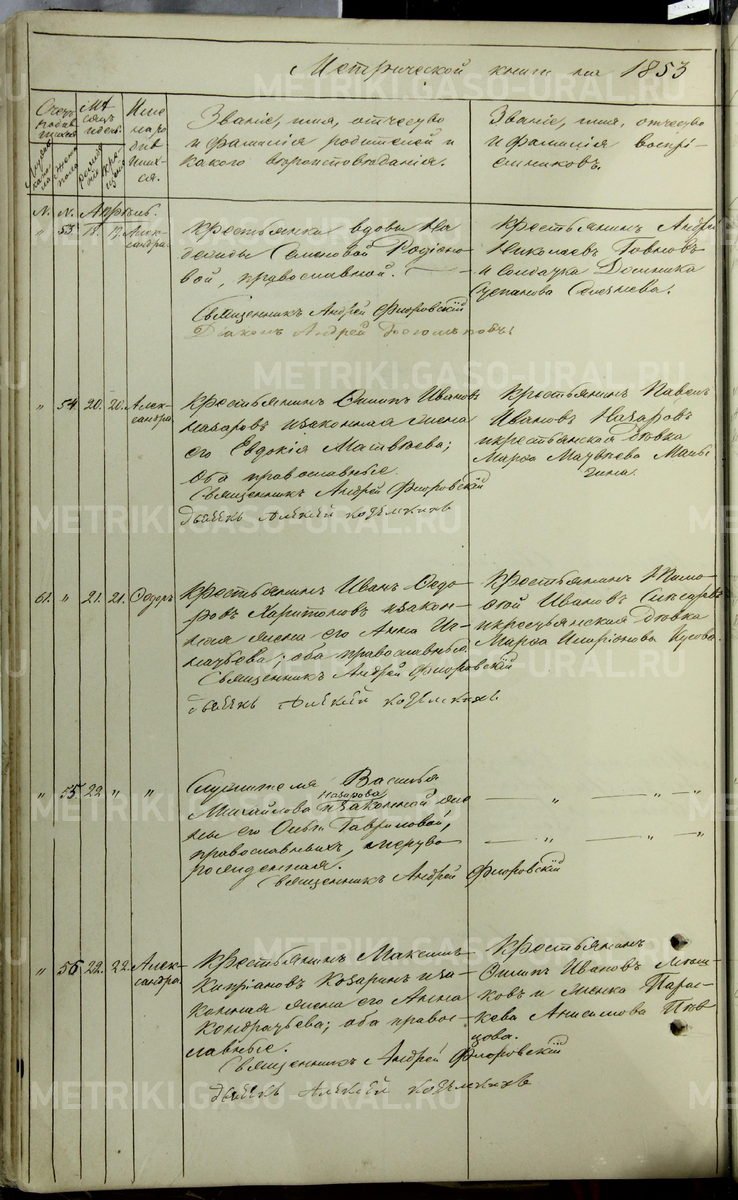 Метрической книги на 1853
Счетъ родившихся
Мѣсяцъ и день
Имена родившихся.
Званіе, имя, отчество
и фамилія родителей и
какого вѣроисповѣданія.
Званіе, имя, отчество
и фамилія воспрі-
емниковъ.
Мужеска пола
женска пола
рожденія
крещенія
N. N. Апрѣль.
" 53. 17. 17. Алек-
сандра.
Крестьянка вдова На
дежды Семеновой Родіоно-
вой, православной.
Священникъ Андрей Флоровскій
Діаконъ Андрей Богомоловъ.
Крестьянинъ Андрей
Николаевъ
и солдатка Домника
Степанова
" 54. 20. 20. Алек-
сандра.
Крестьянинъ Осипъ Ивановъ
Назаровъ и законная жена
его Евдокія Матвѣева;
оба православные.
Священникъ Андрей Флоровскій
дьячекъ Алексій
Крестьянинъ Павелъ
Ивановъ Назаровъ
и крестьянская дѣвка
Марѳа Матвѣева
61. " 21. 21. Ѳедоръ
Крестьянинъ Иванъ Ѳедо-
ровъ Харитоновъ и закон-
ная жена его Анна Иг-
натьева; оба православные.
Священникъ Андрей Флоровскій
дьячекъ Алексій
Крестьянинъ Тимо-
ѳей Ивановъ
и крестьянская дѣвка
Марѳа Иларіонова
" 55. 22. " "
Служителя Василья
Михайлова Назарова и законной же-
ны его Ольги Гавриловой,
православныхъ, мертво-
рожденная.
Священникъ Андрей Флоровскій
" 56. 22. 22. Алек-
сандра.
Крестьянинъ Максимъ
Кипріановъ Козаринъ и за-
конная жена его Анна
Кондратьева; оба право-
славные.
Священникъ Андрей Флоровскій
дьячекъ Алексій
Крестьянинъ
Осипъ Ивановъ
и женка Парас-
кева Анисимова
METRIKI.GASO-URAL.RU